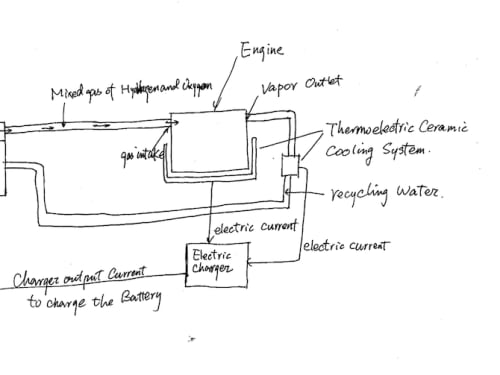 Engine
Vapor Outlet
Mixed gas of Hydrogen and Oxygen
gas intake
Thermoelectric Ceramic
Cooling System.
recycling Water.
electric current
electric current
Electric
Charger
Charger output Current
to charge the Battery